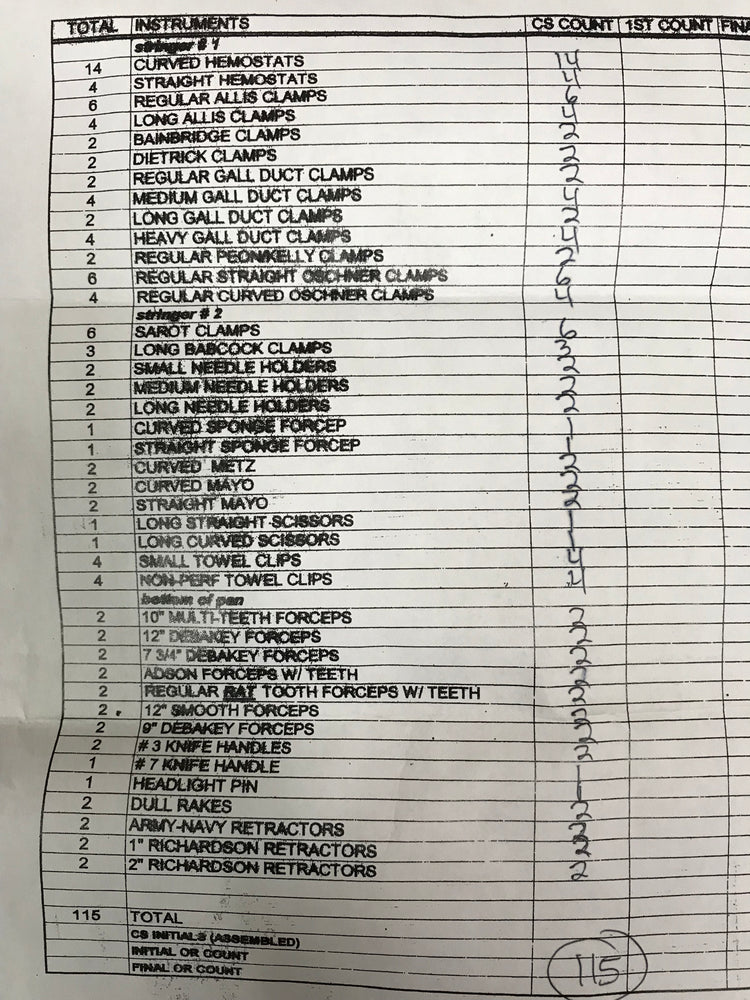 TOTAL INSTRUMENTS CS COUNT 1ST COUNT FINA
stringer # 1
14 CURVED HEMOSTATS 14
4 STRAIGHT HEMOSTATS 4
6 REGULAR ALLIS CLAMPS 6
4 LONG ALLIS CLAMPS 4
2 BAINBRIDGE CLAMPS 2
2 DIETRICK CLAMPS 2
2 REGULAR GALL DUCT CLAMPS 2
4 MEDIUM GALL DUCT CLAMPS 4
2 LONG GALL DUCT CLAMPS 2
4 HEAVY GALL DUCT CLAMPS 4
2 REGULAR PEON/KELLY CLAMPS 2
6 REGULAR STRAIGHT OSCHNER CLAMPS 6
4 REGULAR CURVED OSCHNER CLAMPS 4
stringer # 2
6 SAROT CLAMPS 6
3 LONG BABCOCK CLAMPS 3
2 SMALL NEEDLE HOLDERS 2
2 MEDIUM NEEDLE HOLDERS 2
2 LONG NEEDLE HOLDERS 2
1 CURVED SPONGE FORCEP 1
1 STRAIGHT SPONGE FORCEP 1
2 CURVED METZ 2
2 CURVED MAYO 2
2 STRAIGHT MAYO 2
1 LONG STRAIGHT SCISSORS 1
1 LONG CURVED SCISSORS 1
4 SMALL TOWEL CLIPS 4
4 NON-PERF TOWEL CLIPS
bottom of pan
2 10" MULTI-TEETH FORCEPS 2
2 12" DEBAKEY FORCEPS 2
2 7 3/4" DEBAKEY FORCEPS 2
2 ADSON FORCEPS W/ TEETH 2
2 REGULAR RAT TOOTH FORCEPS W/ TEETH 2
2 12" SMOOTH FORCEPS 2
2 9" DEBAKEY FORCEPS 2
2 # 3 KNIFE HANDLES 2
1 # 7 KNIFE HANDLE 1
1 HEADLIGHT PIN 1
2 DULL RAKES 2
2 ARMY-NAVY RETRACTORS 2
2 1" RICHARDSON RETRACTORS 2
2 2" RICHARDSON RETRACTORS 2
115 TOTAL
CS INITIALS (ASSEMBLED)
INITIAL OR COUNT 115
FINAL OR COUNT